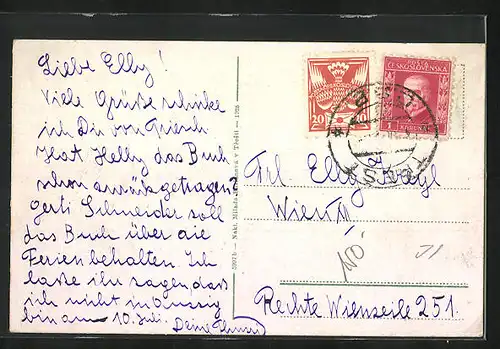 Liebe Elly!
Viele Grüße schicke
ich Dir von Triesch
Hat Helly das Buch
schon zurückgetragen?
Gerti Schneider soll
das Buch über die
Ferien behalten. Ich
lasse ihr sagen daß
ich nicht in
bin am 10. Juli.
Deine
POŠTA
ČESKOSLOVENSKÁ
20
1
Frl. Elly
Wien
Rechte Wienzeile 251.